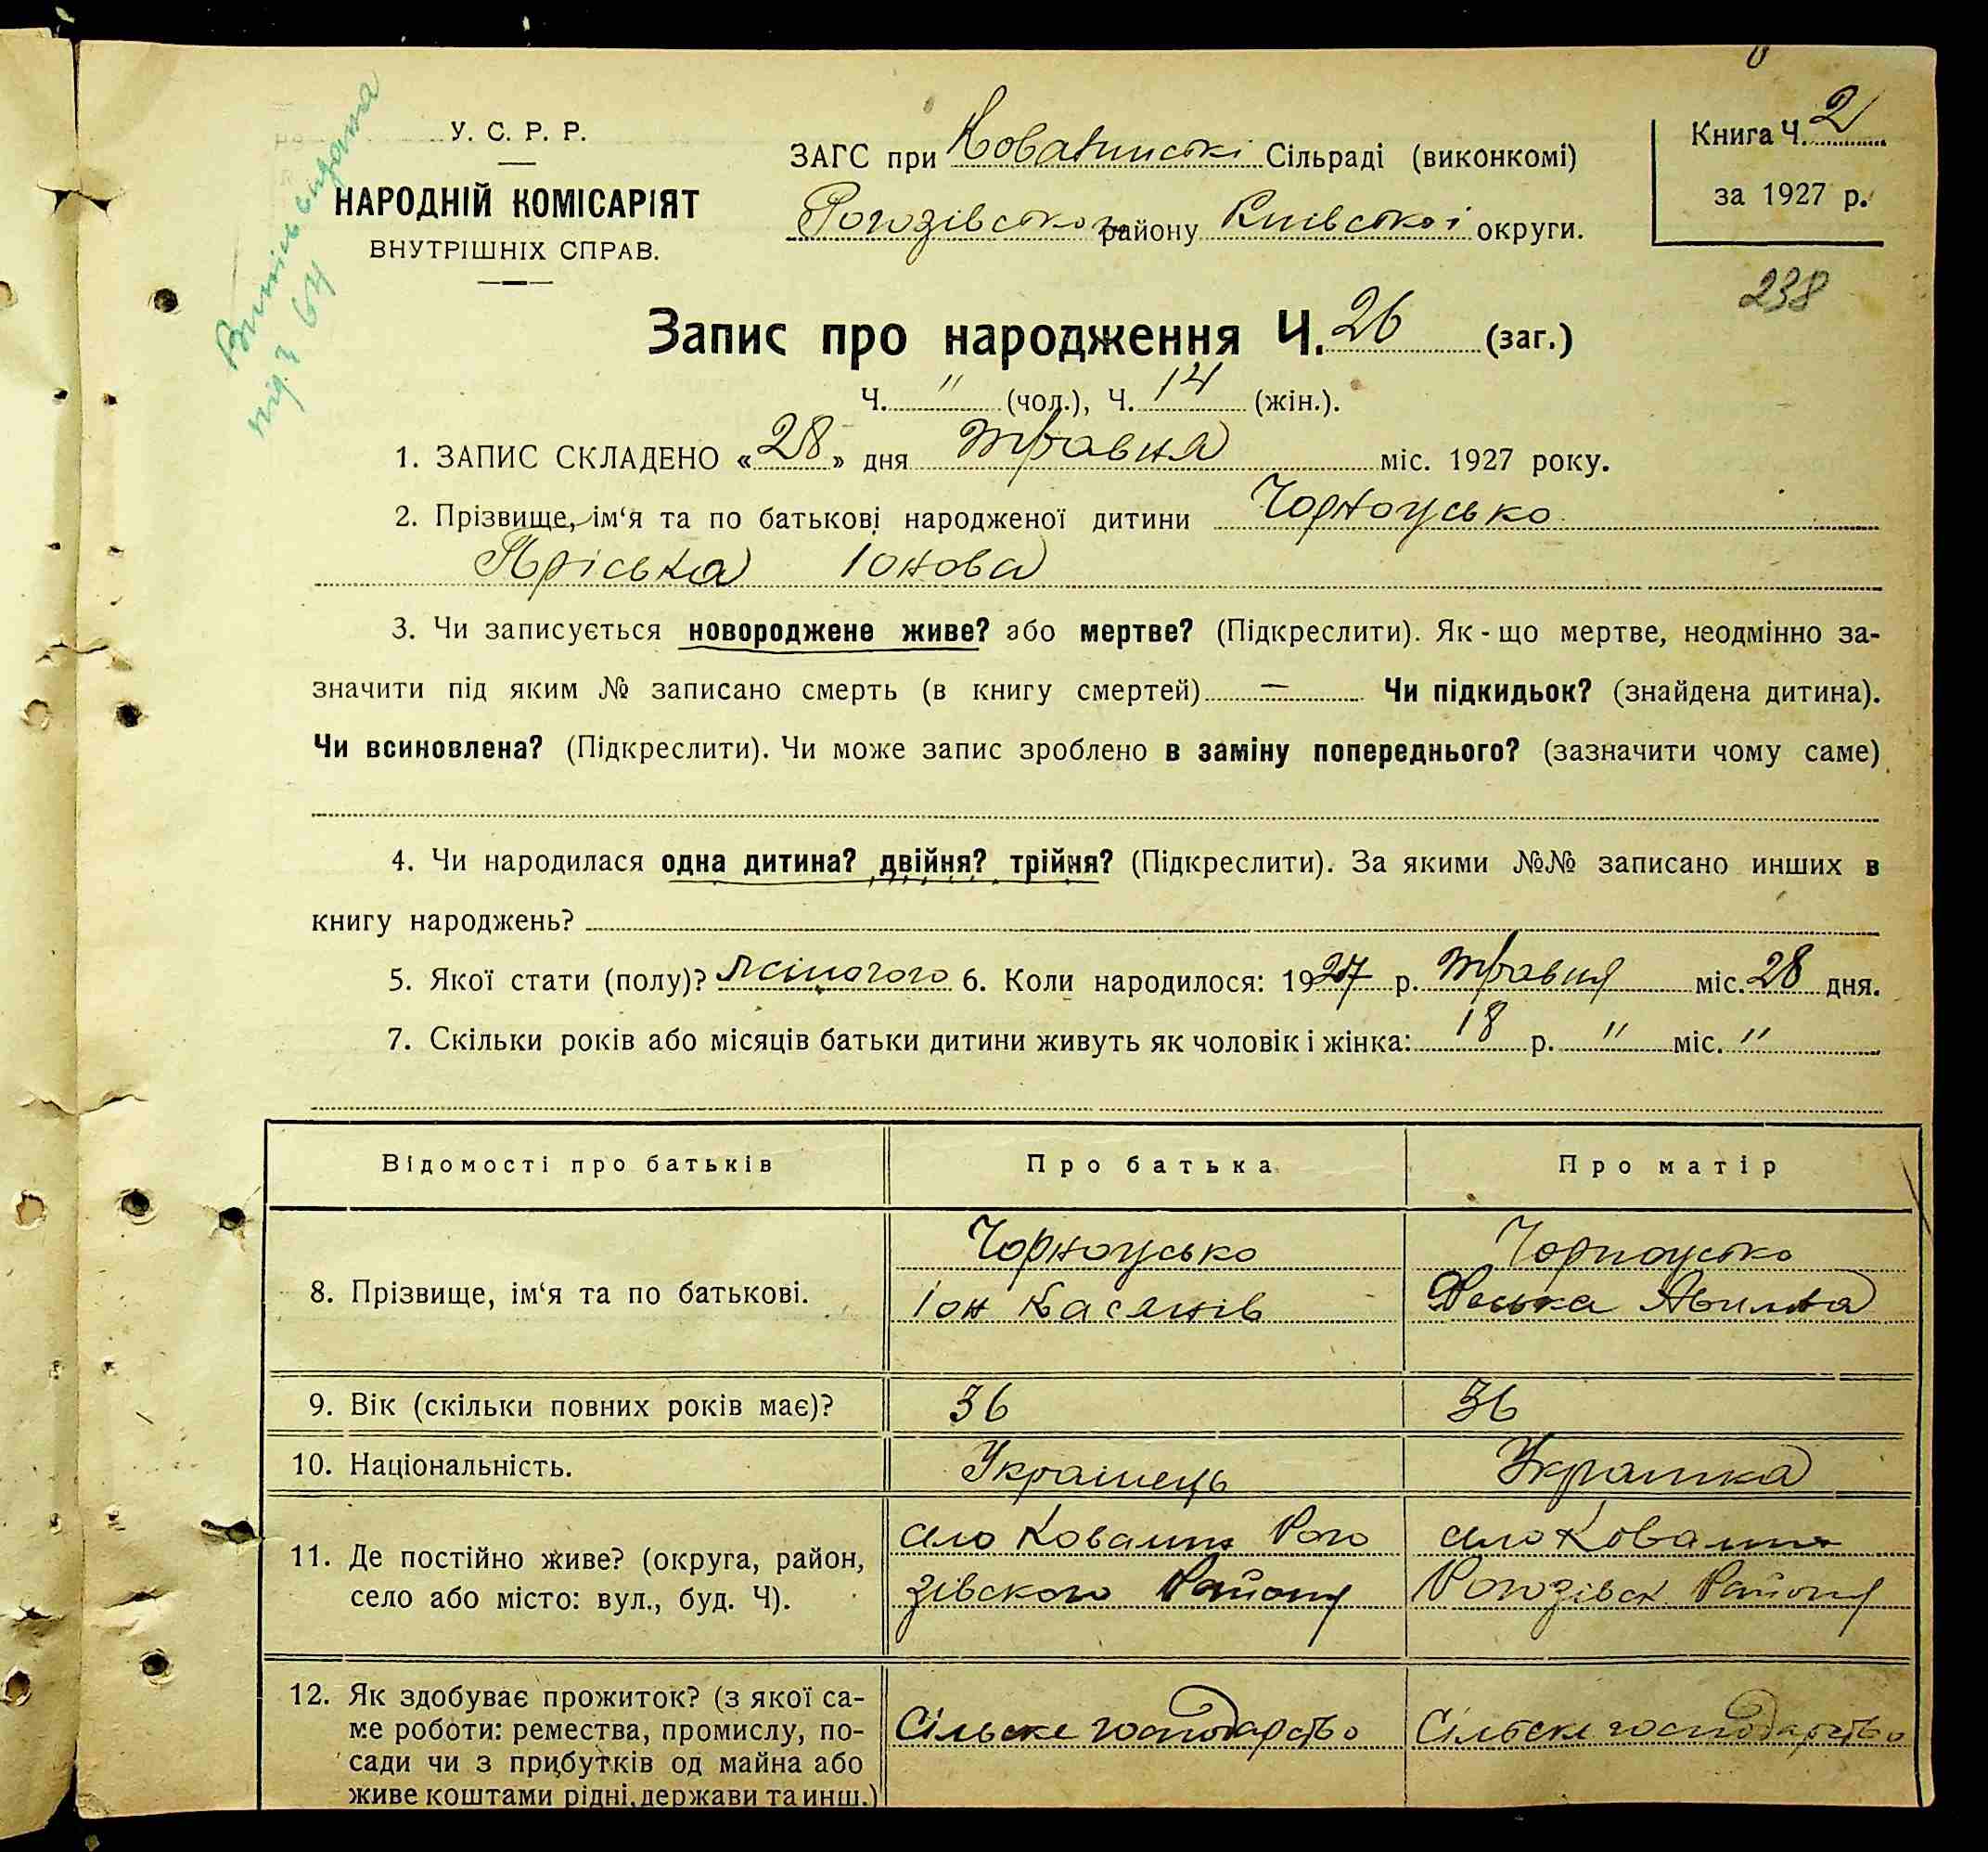 У. С. Р. Р.
НАРОДНІЙ КОМІСАРІЯТ
ВНУТРІШНІХ СПРАВ.
ЗАГС при Ковалинські Сільраді (виконкомі)
Рогозівського району Київської округи.
Книга Ч. 2
за 1927 р.
238
Запис про народження Ч. 26 (заг.)
Ч. " (чол.), Ч. 14 (жін.).
1. ЗАПИС СКЛАДЕНО «28» дня травня міс. 1927 року.
2. Прізвище, ім‘я та по батькові народженої дитини Чорноусько
Пріська Іонова
3. Чи записується новороджене живе? або мертве? (Підкреслити). Як-що мертве, неодмінно за-
значити під яким № записано смерть (в книгу смертей) — Чи підкидьок? (знайдена дитина).
Чи всиновлена? (Підкреслити). Чи може запис зроблено в заміну попереднього? (зазначити чому саме)
4. Чи народилася одна дитина? двійня? трійня? (Підкреслити). За якими №№ записано инших в
книгу народжень?
5. Якої стати (полу)? жіночого 6. Коли народилося: 1927 р. травня міс. 28 дня.
7. Скільки років або місяців батьки дитини живуть як чоловік і жінка: 18 р. " міс. "
Відомості про батьків Про батька Про матір
8. Прізвище, ім‘я та по батькові.
Чорноусько
Іон Касянів
Чорноусько
9. Вік (скільки повних років має)? 36 36
10. Національність. Українець Українка
11. Де постійно живе? (округа, район,
село або місто: вул., буд. Ч).
село Ковалин Рого
зівского Району
село Ковалин
Рогозівск. Району
12. Як здобуває прожиток? (з якої са-
ме роботи: ремества, промислу, по-
сади чи з прибутків од майна або
живе коштами рідні, держави та инш.)
Сільске господарство
Сільске господарство